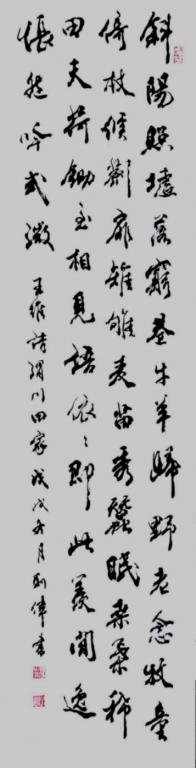 斜陽照墟落窮巷牛羊歸野老念牧童
倚杖候荆扉雉雊麦苗秀蠶眠桑葉稀
田夫荷鋤至相見語依々即此羨閒逸
悵然吟式微 王維詩渭川田家 戊戌冬月 刘偉書